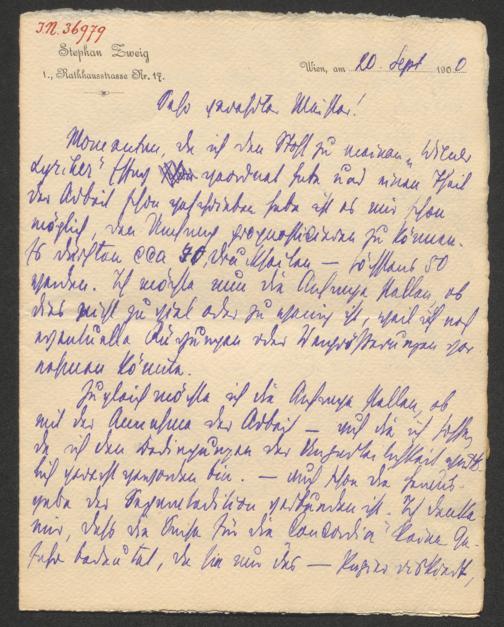 I.N. 36979
Stephan Zweig
1., Rathhausstrasse Nr. 17.
Wien, am 20. Sept 1900
Sehr geehrter Meister!
Momentan, da ich den Stoff zu meinem „Wiener
Lyriker" Essay geordnet habe und einen Theil
der Arbeit schon geschrieben habe ist es mir schon
möglich, den Umfang prognosticieren zu können.
Es dürften cca 40, Druckseiten – höchstens 50
werden. Ich möchte nun die Anfrage stellen, ob
dies nicht zu viel oder zu wenig ist, weil ich noch
eventuelle Kürzungen oder Vergrößerungen vor
nehmen könnte.
Zugleich möchte ich die Anfrage stellen, ob
mit der Annahme der Arbeit – auf die ich hoffe,
da ich den Bedingungen der
gerecht geworden bin. – auch schon die Heraus-
gabe der Separatedition verbunden ist. Ich denke
nur, dass die für die „Concordia" keine Ge-
fahr bedeutet, da sie nur das – Papier riskiert,